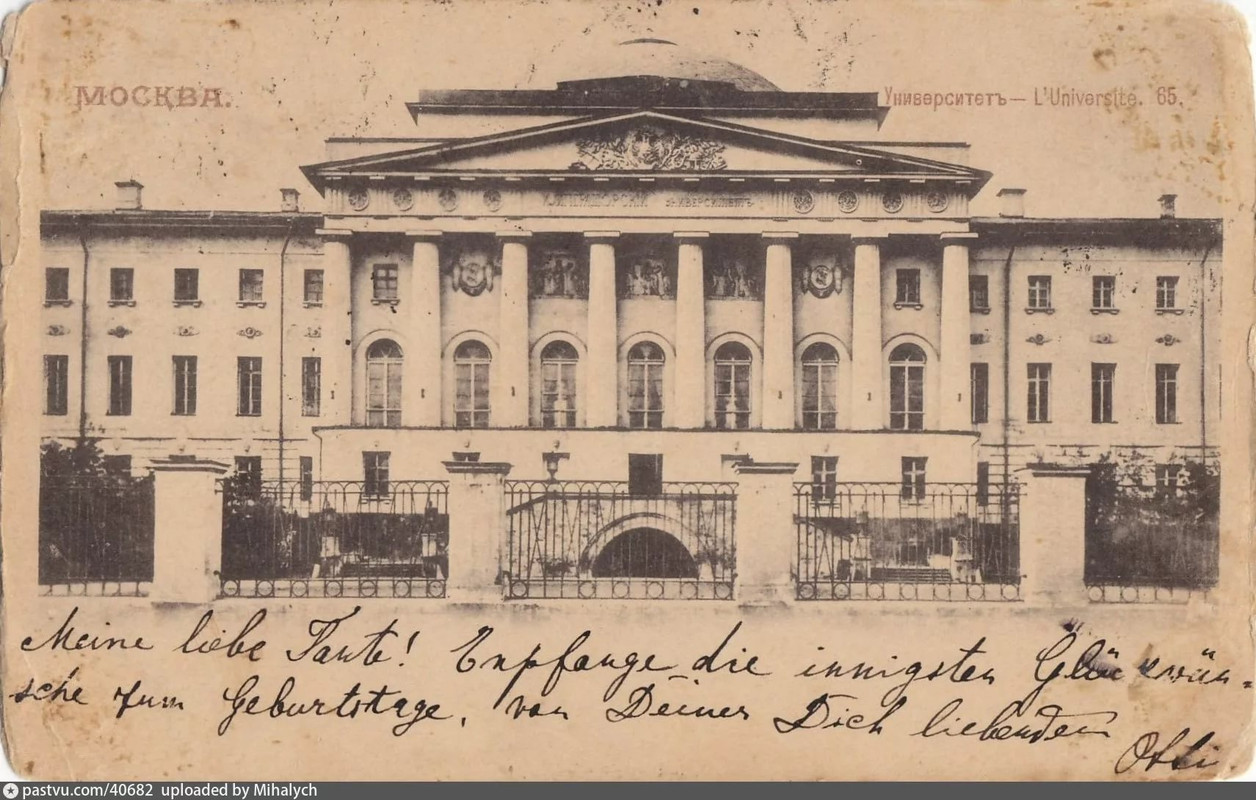 МОСКВА.
Университетъ — L'Universite. 65.
УНИВЕРСИТЕТЪ
Meine liebe Tante! Empfange die innigsten Glückwün-
sche zum Geburtstage, von Deiner Dich liebenden
pastvu.com/40682 uploaded by Mihalych